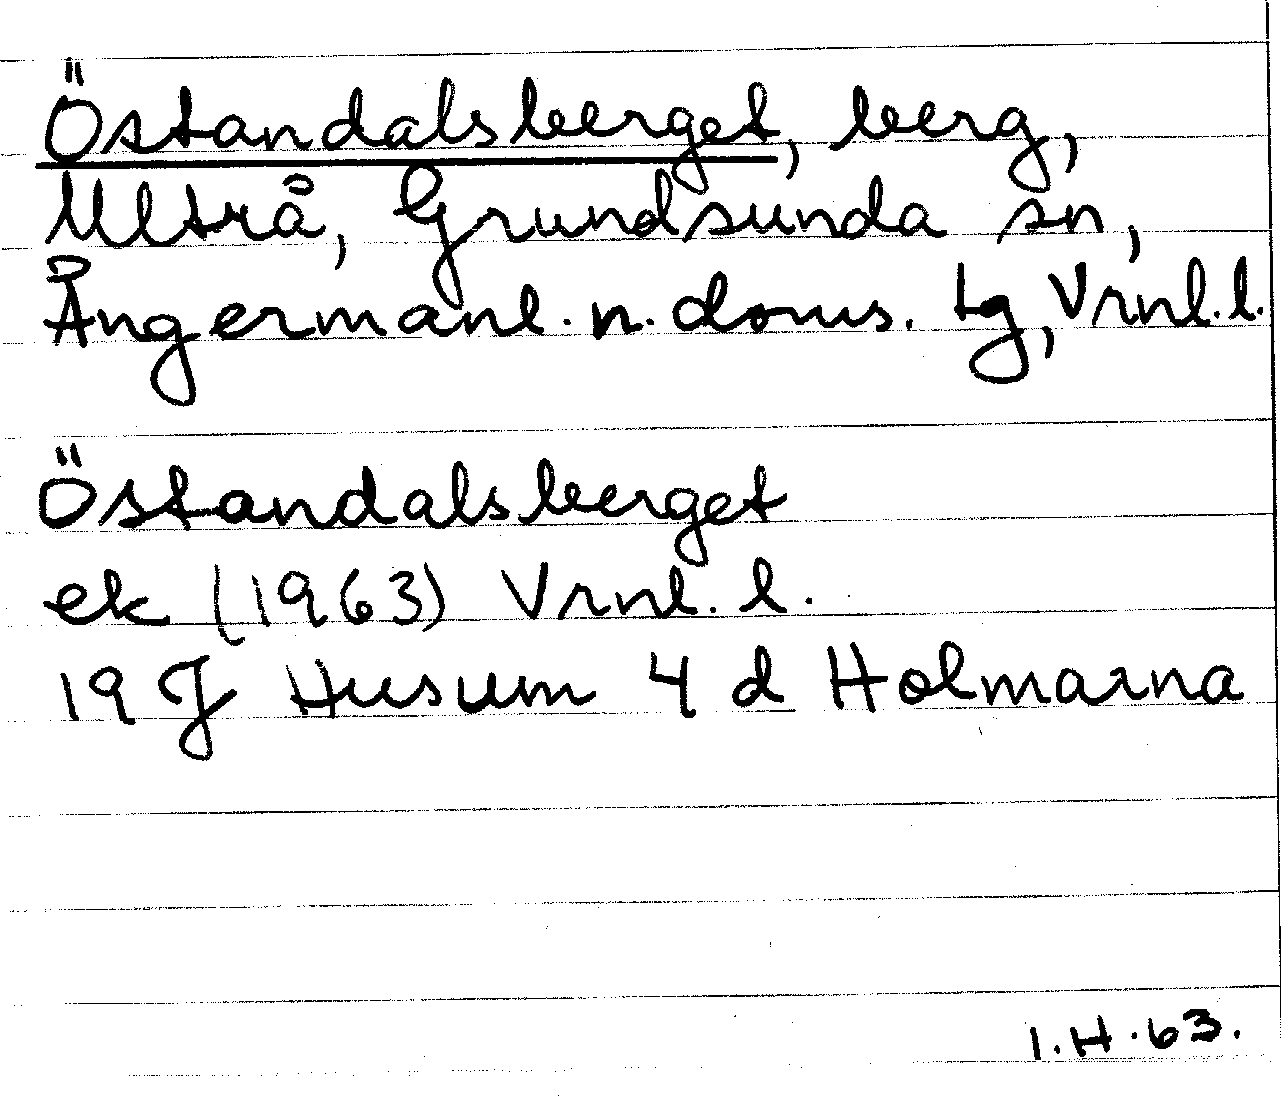 Östandalsberget, berg,
Ultrå, Grundsunda sn,
Ångermanl. n. doms. tg, Vrnl. l.
Östandalsberget
ek (1963) Vrnl. l.
19 J Husum 4 d Holmarna
I. H. 63.